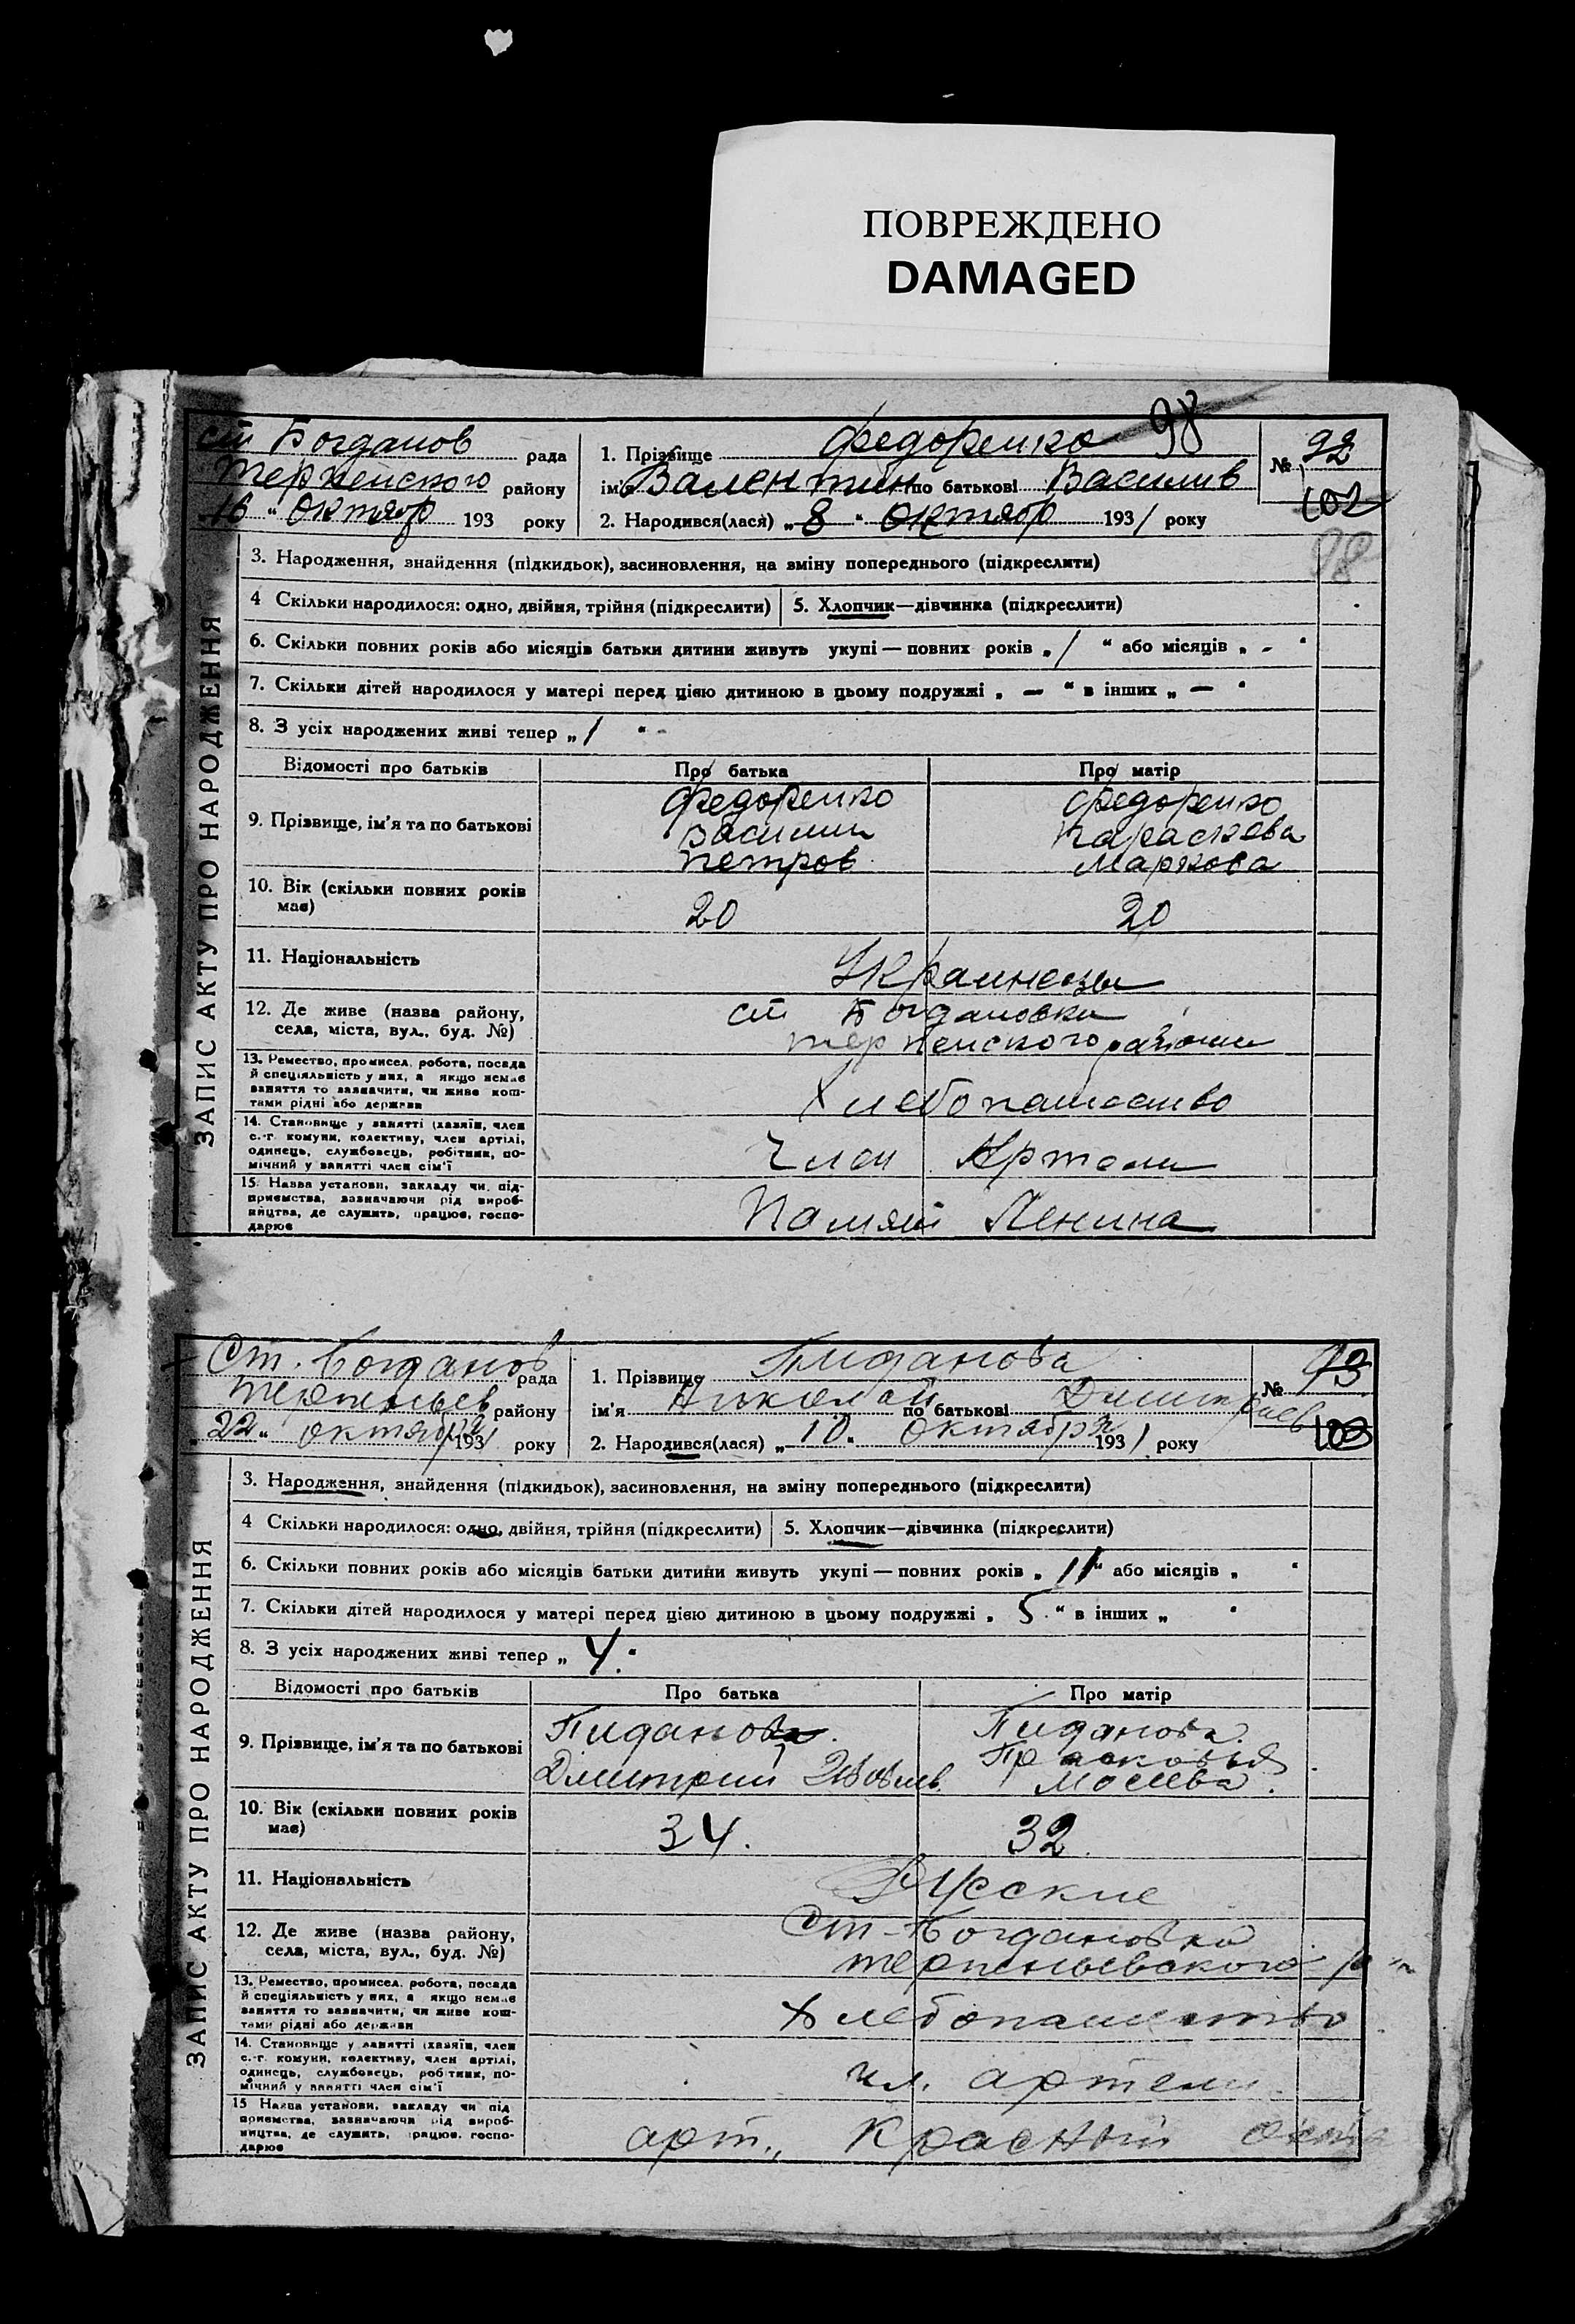 ПОВРЕЖДЕНО
DAMAGED
98
ст Богданов рада
Терпенского району
„16“ октябр 193 року
1. Прізвище Федоренко
ім'я Валентин по батькові Васильев
2. Народився(лася) „8“ октябр 1931 року
№ 92
102
98
ЗАПИС АКТУ ПРО НАРОДЖЕННЯ
3. Народження, знайдення (підкидьок), засиновлення, на зміну попереднього (підкреслити)
4 Скільки народилося: одно, двійня, трійня (підкреслити) 5. Хлопчик—дівчинка (підкреслити)
6. Скільки повних років або місяців батьки дитини живуть укупі — повних років „1“ або місяців „-“
7. Скільки дітей народилося у матері перед цією дитиною в цьому подружжі „—“ в інших „—“
8. З усіх народжених живі тепер „1“
Відомості про батьків Про батька Про матір
9. Прізвище, ім'я та по батькові
Федоренко Федоренко
Василий Параскева
Петров Маркова
10. Вік (скільки повних років
має) 20 20
11. Національність Украинецы
12. Де живе (назва району, ст Богдановки
села, міста, вул., буд. №) терпенского района
13. Ремество, промисел, робота, посада
й спеціяльність у них, а якщо немає
заняття то зазначити, чи живе кош-
тами рідні або держави
Хлебопашество
14. Становище у занятті (хазяїн, член
с.-г. комуни, колективу, член артілі,
одинець, службовець, робітник, по-
мічний у занятті член сім'ї
Член Артели
15. Назва установи, закладу чи під-
приємства, зазначаючи рід вироб-
ництва, де служить, працює, госпо-
дарює
Памяти Ленина
Ст. Богданов рада
Терпеньев району
„22“ октября 1931 року
1. Прізвище Пиданова
ім'я Николай по батькові Дмитриев
2. Народився(лася) „10“ октября 1931 року
№ 93
103
ЗАПИС АКТУ ПРО НАРОДЖЕННЯ
3. Народження, знайдення (підкидьок), засиновлення, на зміну попереднього (підкреслити)
4 Скільки народилося: одно, двійня, трійня (підкреслити) 5. Хлопчик—дівчинка (підкреслити)
6. Скільки повних років або місяців батьки дитини живуть укупі — повних років „11“ або місяців „ “
7. Скільки дітей народилося у матері перед цією дитиною в цьому подружжі „5“ в інших „ “
8. З усіх народжених живі тепер „4“
Відомості про батьків Про батька Про матір
9. Прізвище, ім'я та по батькові
Пиданова Пиданова
Дмитрий Прасковья
Мосеева
10. Вік (скільки повних років
має) 34. 32
11. Національність Русские
12. Де живе (назва району, Ст-Богдановка
села, міста, вул., буд. №) терпеньевского р-н
13. Ремество, промисел, робота, посада
й спеціяльність у них, а якщо немає
заняття то зазначити, чи живе кош-
тами рідні або держави
Хлебопашество
14. Становище у занятті (хазяїн, член
с.-г. комуни, колективу, член артілі,
одинець, службовець, робітник, по-
мічний у занятті член сім'ї
чл. артели
15 Назва установи, закладу чи під
приємства, зазначаючи рід вироб-
ництва, де служить, працює, госпо-
дарює
арт. Красный